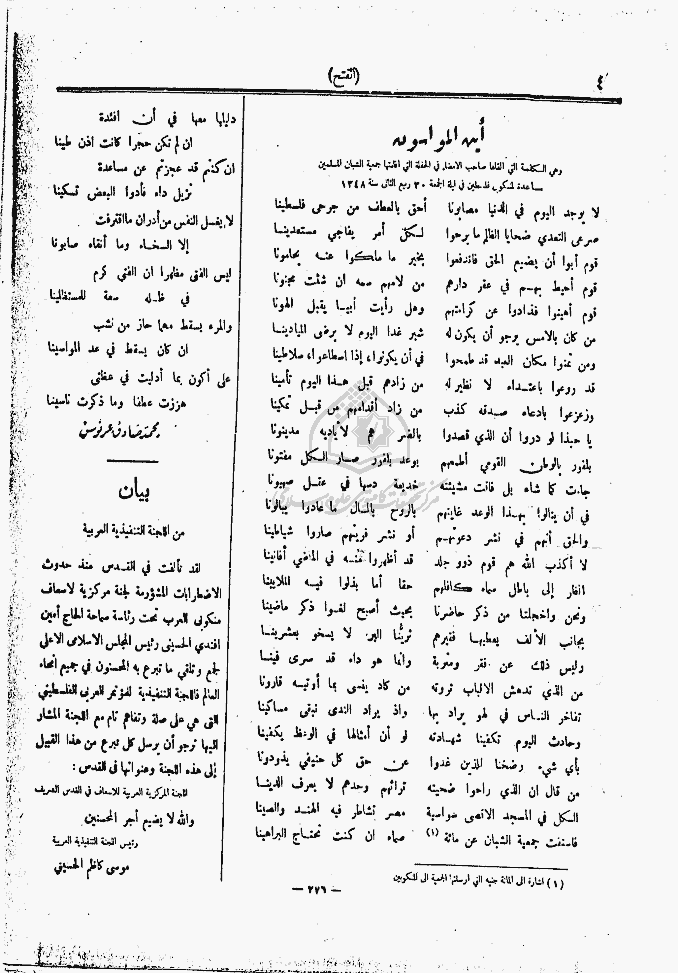 ٤
(الفتح)
أين المواسون
وهي الكلمة التي القاها صاحب الامضاء في الحفلة التي اقامتها جمعية الشبان المسلمين
مساعدة لمنكوبي فلسطين في ليلة الجمعة ٣٠ ربيع الثاني سنة ١٣٤٨
لا يوجد اليوم في الدنيا مصابونا أحق بالعطف من جرحى فلسطينا
صرعى التعدي ضحايا الظلم ما برحوا لكل أمر يفاجي مستعدينا
قوم أبوا أن يضيم الحق فاندفعوا بخير ما ملكوا عنه يحامونا
قوم أحيط بهم في عقر دارهم من لامهم سمه ان شئت مجنونا
قوم أهينوا فذادوا عن كرامتهم وهل رأيت أبيا يقبل الهونا
من كان بالامس يرجو أن يكون له شبر غدا اليوم لا يرضى الميادينا
ومن تمنوا مكان العبد قد طمحوا في أن يكونوا، إذا اسطاعوا، سلاطينا
قد روعوا باعتداء لا نظير له من زادهم قبل هذا اليوم تأمينا
وزعزعوا بادعاء صدقه كذب من زاد أقدامهم من قبل تمكينا
يا حبذا لو دروا أن الذي قصدوا بالضر هم لأياديه مدينونا
بلفور بالوطن القومي أطمعهم بوعد بلفور صار الكل مفتونا
جاءت كما شاء بل فاتت مشيئته خديعة دسها في عقل صهيونا
في أن ينالوا بهذا الوعد غايتهم بالروح بالمال ما عادوا يبالونا
والحق أنهم في نشر دعوتهم أو نشر فريتهم صاروا شياطينا
لا أكذب الله هم قوم ذوو جلد قد أظهروا منه في الماضي أفانينا
انظر إلى بالمال سماه كافلهم حقا أما بذلوا فيه الملايينا
ونحن واخجلتا من ذكر حاضرنا بحيث أصبح لغوا ذكر ماضينا
بجانب الألف يعطيها فقيرهم ثرينا البر لا يسخو بعشرينا
وليس ذلك عن فقر ومتربة وانما هو داء قد سرى فينا
من الذي تدهش الالباب ثروته من كاد ينسى بما أوتيه قارونا
تفاخر الناس في لهو يراد بها واذ يراد الندى نبقى مساكينا
وحادث اليوم تكفينا شهادته لو أن أمثالها في الوعظ يكفينا
بأي شيء رضخنا للذين غدوا عن حق كل حنيفي يذودونا
من قال ان الذي راحوا ضحيته تراثهم وحدهم لا يعرف الدينا
الكل في المسجد الاقصى سواسية مصر تشاطر فيه الهند والصينا
فاستفت جمعية الشبان عن مائة (١) صماء ان كنت تحتاج البراهينا
(١) اشارة الى المائة جنيه التي ارسلتها الجمعية الى المنكوبين
دليلها معها في أن أفئدة
ان لم تكن حجرا كانت اذن طينا
ان كنتم قد عجزتم عن مساعدة
تزيل داء فأدوا البعض تسكينا
لا يغسل النفس من أدران ما اقترفت
إلا السخاء وما أنقاه صابونا
ليس الفتى مظهرا ان الفتى كرم
في ظله سعة للمستظلينا
والمرء يسقط مهما حاز من نشب
ان كان يسقط في عد المواسينا
على أكون بما أدليت في عظتي
هززت عطفا وما ذكرت ناسينا
محمد صادق عرنوس
بيان
من اللجنة التنفيذية العربية
لقد تألفت في القدس منذ حدوث
الاضطرابات المشؤومة لجنة مركزية لاسعاف
منكوبي العرب تحت رئاسة سماحة الحاج أمين
افندي الحسيني رئيس المجلس الاسلامي الاعلى
لجمع وتلقي ما تبرع به المحسنون في جميع أنحاء
العالم فاللجنة التنفيذية لمؤتمر العربي الفلسطيني
التي هي على صلة وتفاهم تام مع اللجنة المشار
اليها ترجو أن يرسل كل تبرع من هذا القبيل
إلى هذه اللجنة وعنوانها في القدس :
اللجنة المركزية العربية للاسعاف في القدس الشريف
والله لا يضيع أجر المحسنين
رئيس اللجنة التنفيذية العربية
موسى كاظم الحسيني
— ٢٧٦ —